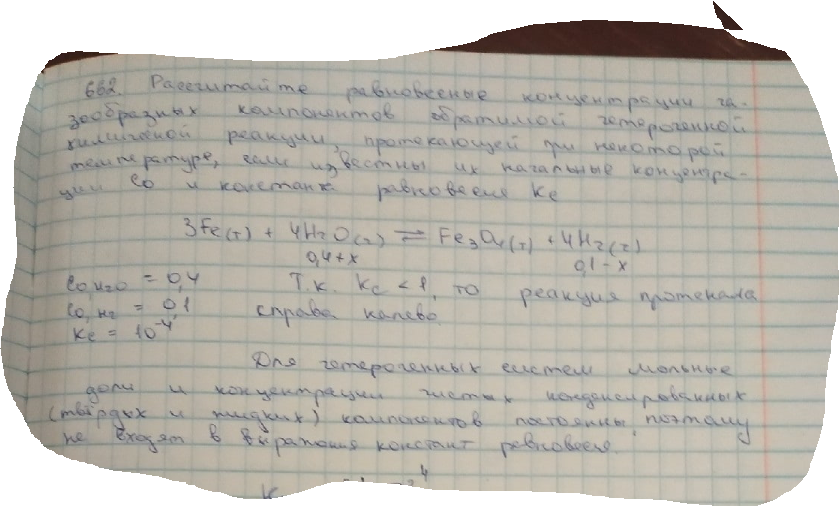 662. Рассчитайте равновесные концентрации га-
зообразных компонентов обратимой гетерогенной
химической реакции, протекающей при некоторой
температуре, если известны их начальные концентра-
ции C0 и константа равновесия Kc
3Fe(т) + 4H2O(г) ⇌ Fe3O4(т) + 4H2(г)
0,4+x 0,1-x
C0,H2O = 0,4 Т.к. Kc < 1, то реакция протекала
C0,H2 = 0,1 справа налево.
Kc = 10^-4
Для гетерогенных систем мольные
доли и концентрации чистых конденсированных
(твёрдых и жидких) компонентов постоянны, поэтому
не входят в выражения констант равновесия.